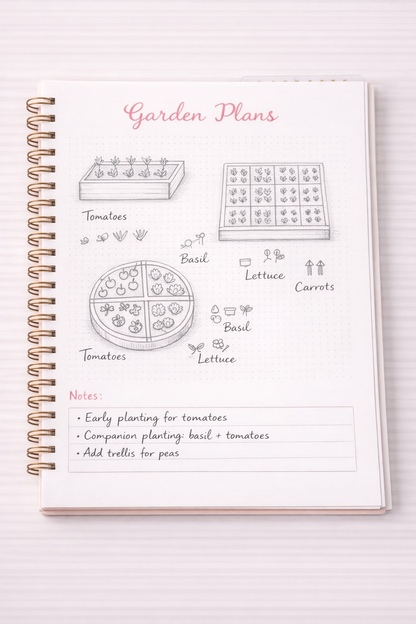 Garden Plans
Tomatoes
Basil
Lettuce
Carrots
Basil
Tomatoes
Lettuce
Notes:
• Early planting for tomatoes
• Companion planting: basil + tomatoes
• Add trellis for peas